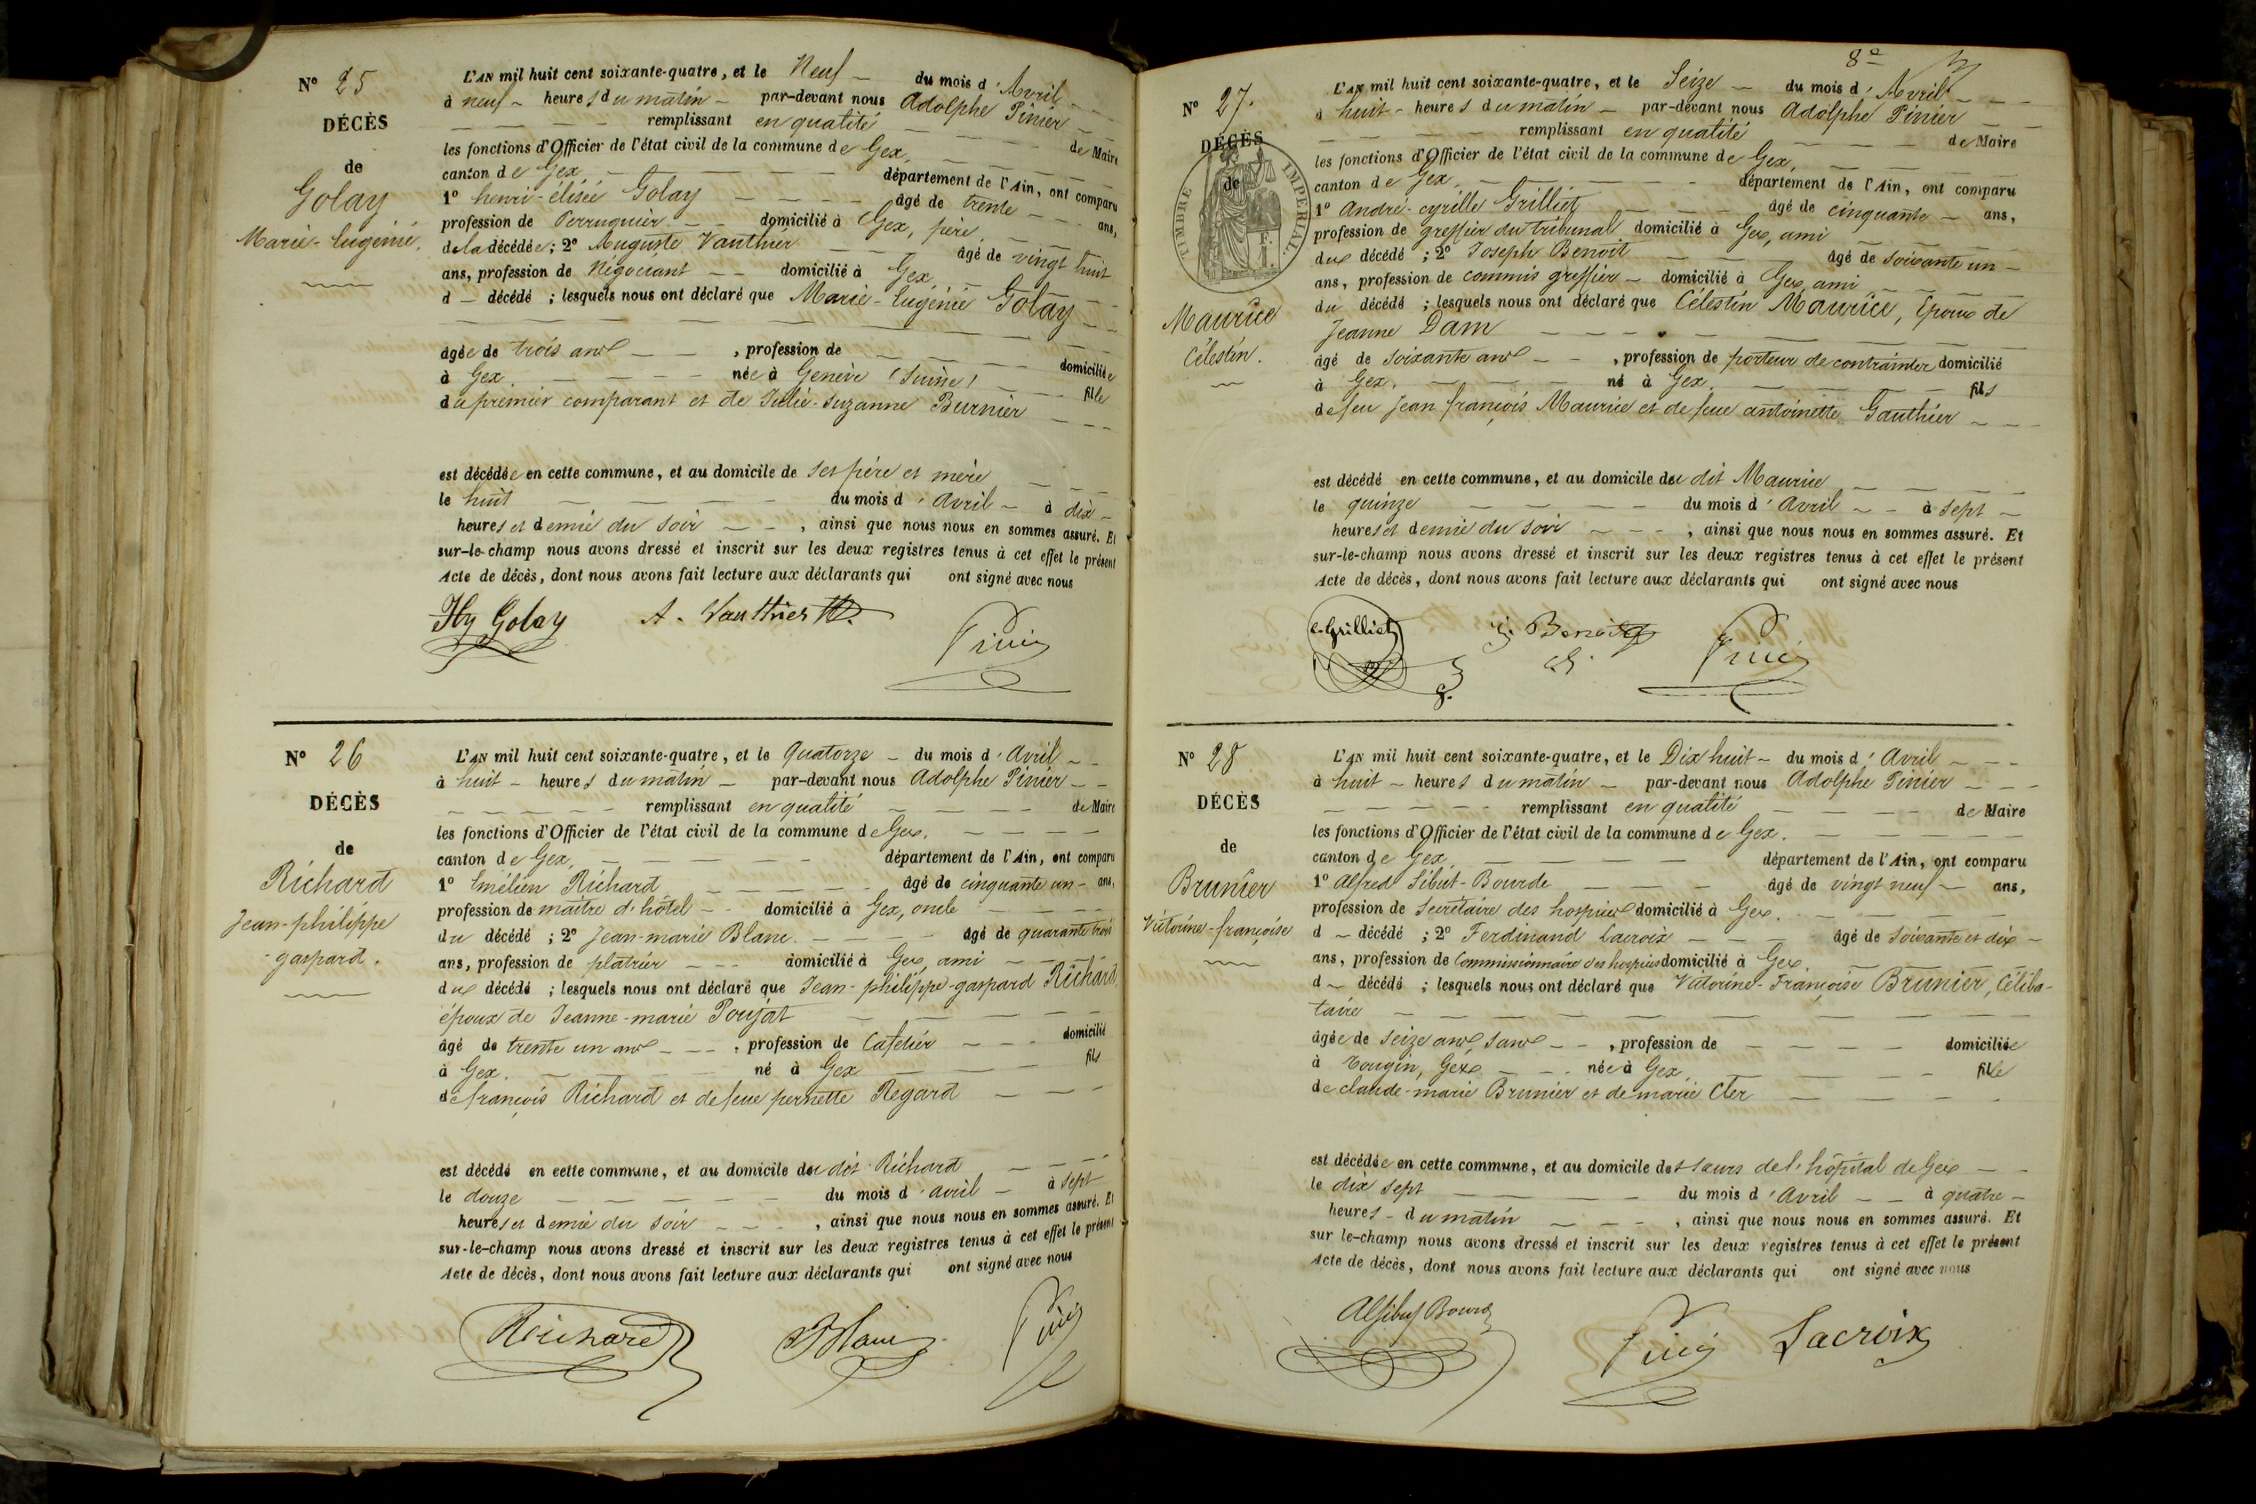 N° 25
DÉCÈS
de
Golay
Marie-Eugénie.
L'AN mil huit cent soixante-quatre, et le Neuf du mois d'Avril
à neuf heures du matin par-devant nous Adolphe Pinier
remplissant en qualité de Maire
les fonctions d'Officier de l'état civil de la commune de Gex,
canton de Gex, département de l'Ain, ont comparu
1° henri-élisée Golay âgé de trente ans,
profession de Perruquier domicilié à Gex, père,
de la décédée; 2° Auguste Vauthier âgé de vingt huit
ans, profession de Négociant domicilié à Gex,
d décédé; lesquels nous ont déclaré que Marie-Eugénie Golay
âgée de trois ans, profession de domiciliée
à Gex. née à Genève (Suisse) fille
du premier comparant et de Julie-Suzanne Burnier
est décédée en cette commune, et au domicile de ses père et mère
le huit du mois d'avril à dix
heures et demie du soir, ainsi que nous nous en sommes assuré. Et
sur-le-champ nous avons dressé et inscrit sur les deux registres tenus à cet effet le présent
Acte de décès, dont nous avons fait lecture aux déclarants qui ont signé avec nous
Hy Golay A. Vauthier Pinier
N° 26
DÉCÈS
de
Richard
Jean-philippe
-gaspard.
L'AN mil huit cent soixante-quatre, et le Quatorze du mois d'Avril
à huit heures du matin par-devant nous Adolphe Pinier
remplissant en qualité de Maire
les fonctions d'Officier de l'état civil de la commune de Gex.
canton de Gex, département de l'Ain, ont comparu
1° Emélien Richard âgé de cinquante un ans,
profession de maître d'hôtel domicilié à Gex, oncle
du décédé; 2° Jean-marie Blanc. âgé de quarante trois
ans, profession de plâtrier domicilié à Gex, ami
du décédé; lesquels nous ont déclaré que Jean-philippe-gaspard Richard,
époux de Jeanne-marie Poujat
âgé de trente un ans, profession de Cafetier domicilié
à Gex. né à Gex fils
de françois Richard et de feue pernette Regard
est décédé en cette commune, et au domicile du dit Richard
le douze du mois d'avril à sept
heures et demie du soir, ainsi que nous nous en sommes assuré. Et
sur-le-champ nous avons dressé et inscrit sur les deux registres tenus à cet effet le présent
Acte de décès, dont nous avons fait lecture aux déclarants qui ont signé avec nous
Richard Blanc Pinier
8e
N° 27.
DÉCÈS
de
TIMBRE IMPÉRIAL.
Maurice
Célestin.
L'AN mil huit cent soixante-quatre, et le Seize du mois d'Avril
à huit heures du matin par-devant nous Adolphe Pinier
remplissant en qualité de Maire
les fonctions d'Officier de l'état civil de la commune de Gex,
canton de Gex, département de l'Ain, ont comparu
1° André-cyrille Grilliet âgé de cinquante ans,
profession de greffier du tribunal domicilié à Gex, ami
du décédé; 2° Joseph Benoit âgé de soixante un
ans, profession de commis greffier domicilié à Gex, ami
du décédé; lesquels nous ont déclaré que Célestin Maurice, Epoux de
Jeanne Dam
âgé de soixante ans, profession de porteur de contraintes domicilié
à Gex. né à Gex. fils
de feu Jean françois Maurice et de feue antoinette Gauthier
est décédé en cette commune, et au domicile du dit Maurice
le quinze du mois d'avril à sept
heures et demie du soir, ainsi que nous nous en sommes assuré. Et
sur-le-champ nous avons dressé et inscrit sur les deux registres tenus à cet effet le présent
Acte de décès, dont nous avons fait lecture aux déclarants qui ont signé avec nous
c. Grilliet J. Benoit Pinier
N° 28
DÉCÈS
de
Brunier
Victorine-françoise
L'AN mil huit cent soixante-quatre, et le Dix huit du mois d'Avril
à huit heures du matin par-devant nous Adolphe Pinier
remplissant en qualité de Maire
les fonctions d'Officier de l'état civil de la commune de Gex.
canton de Gex, département de l'Ain, ont comparu
1° Alfred Sibut-Bourde âgé de vingt neuf ans,
profession de Secrétaire des hospices domicilié à Gex.
d décédé; 2° Ferdinand Lacroix âgé de soixante et dix
ans, profession de Commissionnaire des hospices domicilié à Gex.
d décédé; lesquels nous ont déclaré que Victorine-Françoise Brunier, Céliba-
taire
âgée de seize ans, sans, profession de domiciliée
à Tougin, Gex née à Gex. fille
de claude-marie Brunier et de marie Cler
est décédée en cette commune, et au domicile des sœurs de l'hôpital de Gex
le dix sept du mois d'Avril à quatre
heures du matin, ainsi que nous nous en sommes assuré. Et
sur le-champ nous avons dressé et inscrit sur les deux registres tenus à cet effet le présent
Acte de décès, dont nous avons fait lecture aux déclarants qui ont signé avec nous
Alf Sibut Bourde Pinier Lacroix